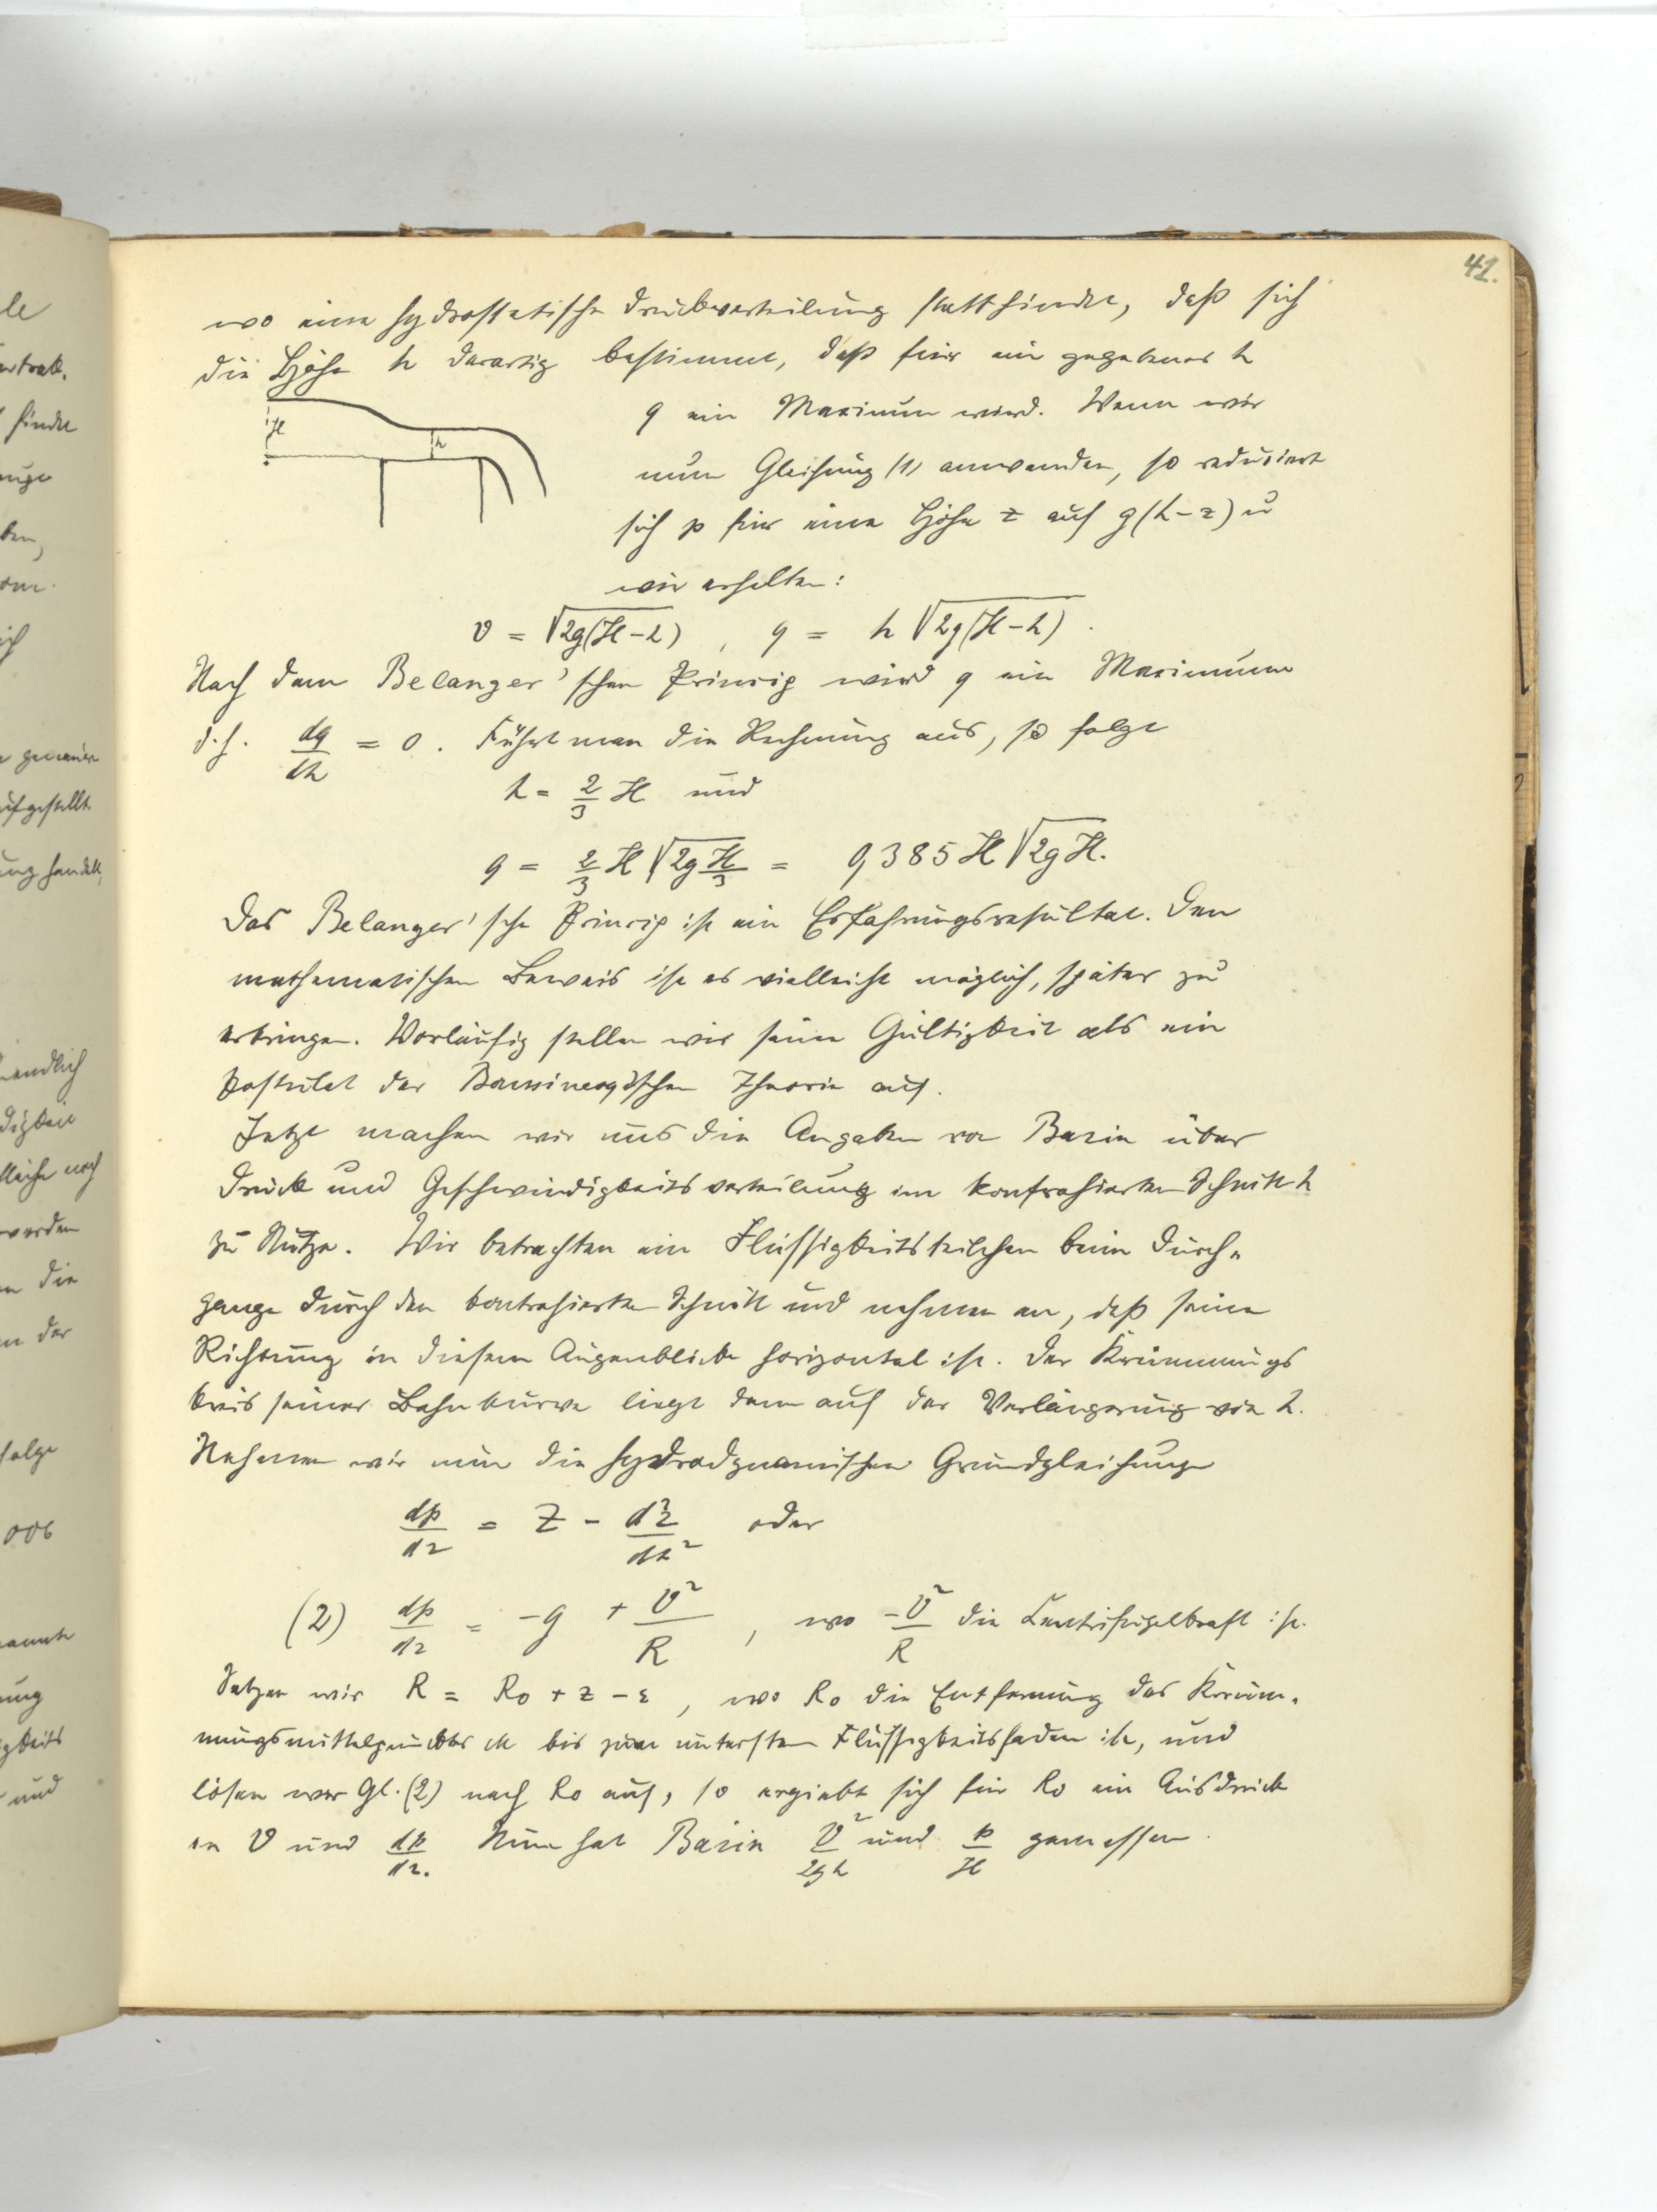 41.
wo eine hydrostatische Druckverteilung stattfindet, daß sich
die Höhe h derartig bestimmt, daß für ein gegebenes h
q ein Maximum wird. Wenn wir
nun Gleichung (1) anwenden, so reduziert
sich p für eine Höhe z auf g(h-z) u
wir erhalten:
H
h
v = √2g(H-h) , q = h √2g(H-h) .
Nach dem Belanger'schen Princip wird q ein Maximum
d.h. dq/dh = 0. Führt man die Rechnung aus, so folgt
h = 2/3 H und
q = 2/3 H √2g H/3 = 0,385 H √2gH.
Das Belanger'sche Princip ist ein Erfahrungsresultat. Den
mathematischen Beweis ist es vielleicht möglich, später zu
erbringen. Vorläufig stellen wir seine Gültigkeit als ein
Postulat der Boussinesq'schen Theorie auf.
Jetzt machen wir uns die Angaben von Bazin über
Druck und Geschwindigkeitsverteilung im kontrahierten Schnitt h
zu Nutze. Wir betrachten ein Flüssigkeitsteilchen beim Durch-
gange durch den kontrahierten Schnitt und nehmen an, daß seine
Richtung in diesem Augenblicke horizontal ist. Der Krümmungs
kreis seiner Bahnkurve liegt dann auf der Verlängerung von h.
Nehmen wir nun die hydrodynamischen Grundgleichungen
dp/dz = Z - d²z/dt² oder
(2) dp/dz = -g + v²/R , wo -v²/R die Centrifugalkraft ist.
Setzen wir R = R0 + z - ε , wo R0 die Entfernung des Krüm-
mungsmittelpunktes M bis zum untersten Flüssigkeitsfaden ist, und
lösen wir Gl. (2) nach R0 auf, so ergiebt sich für R0 ein Ausdruck
in v und dp/dz. Nun hat Bazin v²/2gh und p/H gemessen.